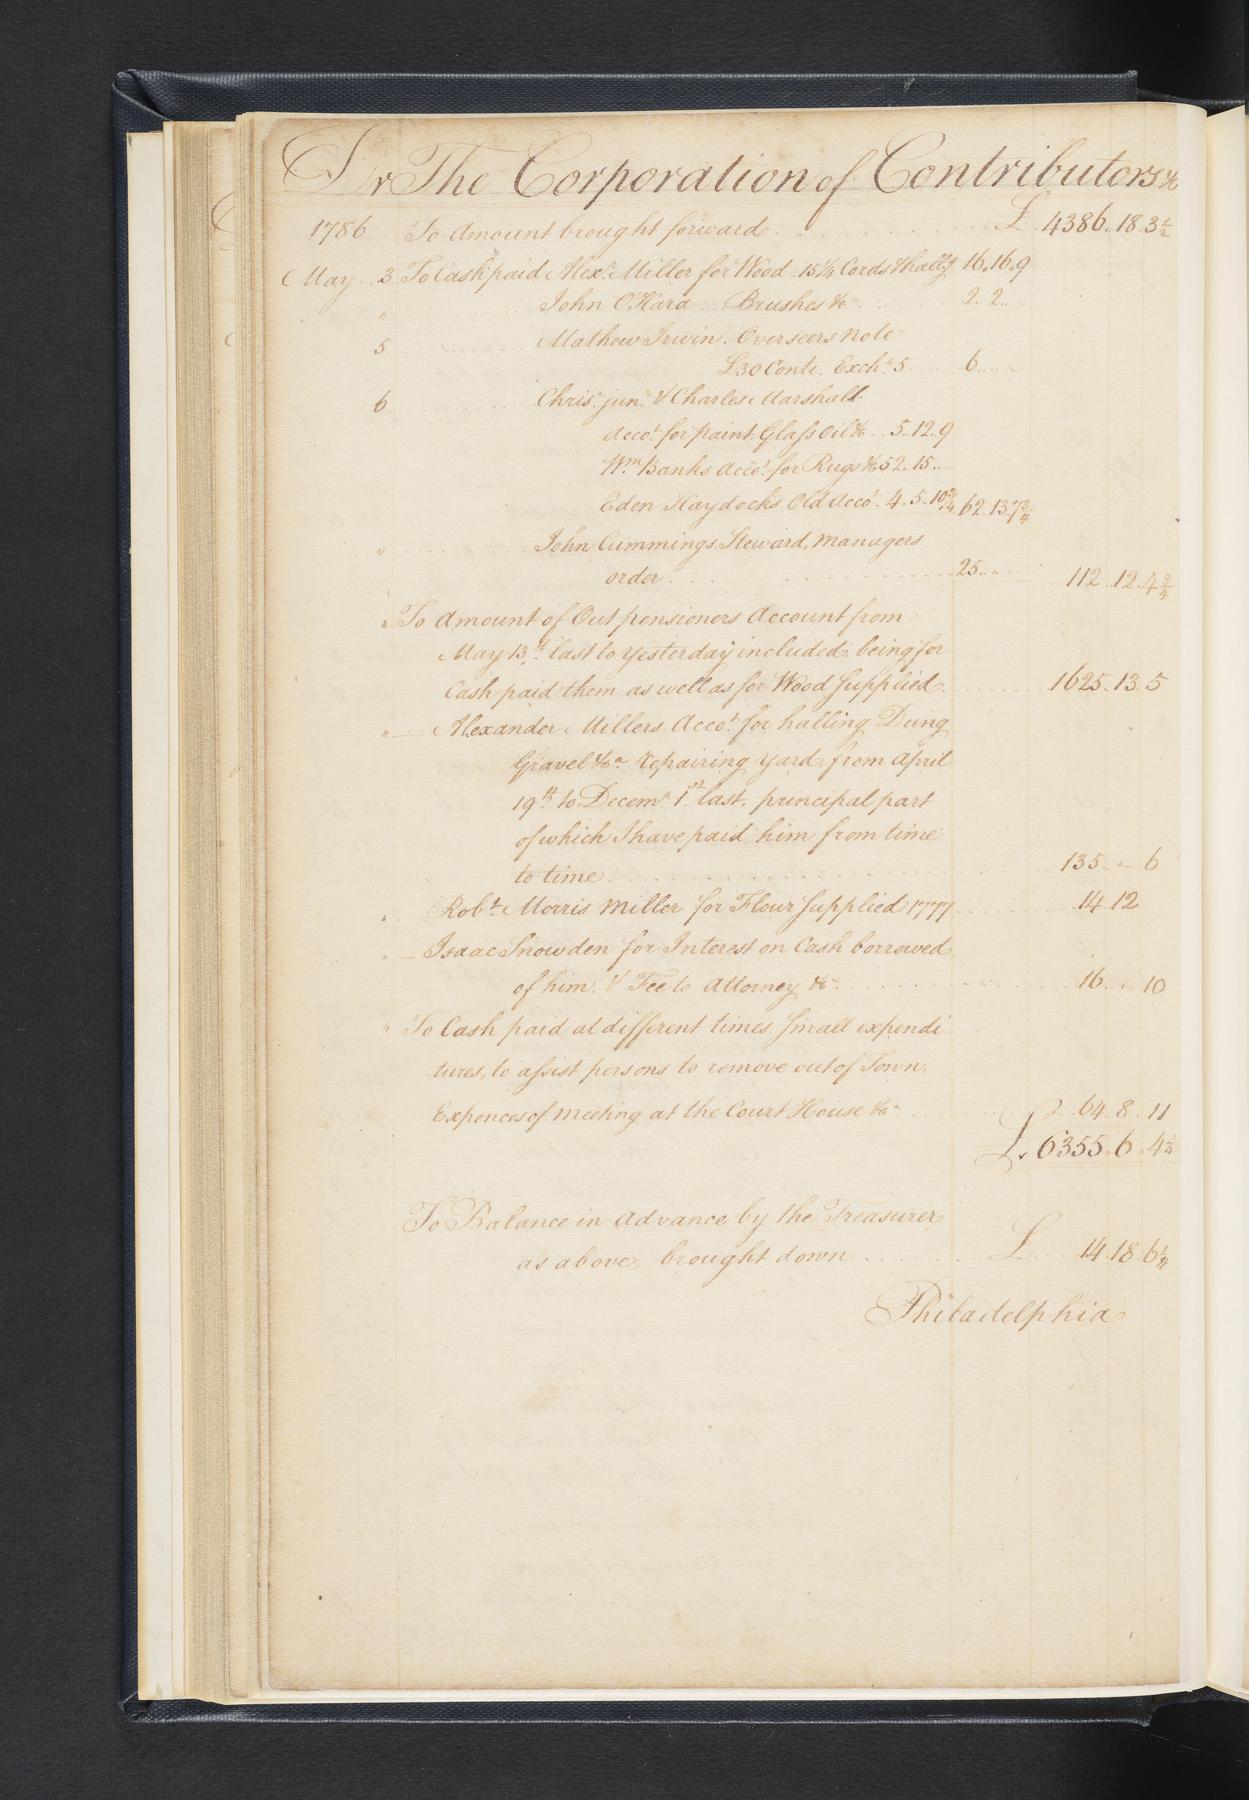 Dr The Corporation of Contributors &c
1786 To Amount brought forward £ 4386. 18. 3½
May 3 To Cash paid Alexr. Miller for Wood 15¼ Cords & hallg 16. 16. 9
" John O'Hara Brushes &c 2. 2.
5 Mathew Irwin. Overseers Note
£30 Conti. Exch.a 5 6.
6 Chris. junr. & Charles Marshall
Accot. for paint Glass Oil &c. 5. 12. 9
Wm. Banks Accot. for Rugs &c 52. 15.
Eden Haydocks Old Accot. 4. 5. 10¾ 62. 13. 7¾
" John Cummings Steward, Managers
order 25. " 112. 12. 4¾
" To Amount of Out pensioners Account from
May 13th. last to Yesterday included, being for
Cash paid them as well as for Wood Supplied 1625. 13. 5
" Alexander Millers Accot. for halling Dung
Gravel &ca repairing Yard, from April
19th to Decemr. 1st last, principal part
of which I have paid him from time
to time 135. " 6
" Robt. Morris Miller for Flour Supplied 1777 14. 12
" Isaac Snowden for Interest on Cash borrowed
of him, & Fee to Attorney &c 16. . 10
" To Cash paid at different times, Small expendi
tures, to assist persons to remove out of Town,
Expences of meeting at the Court House &c 64. 8. 11
£ 6355. 6. 4¼
To Balance in advance by the Treasurer
as above, brought down £ 14. 18. 6¼
Philadelphia